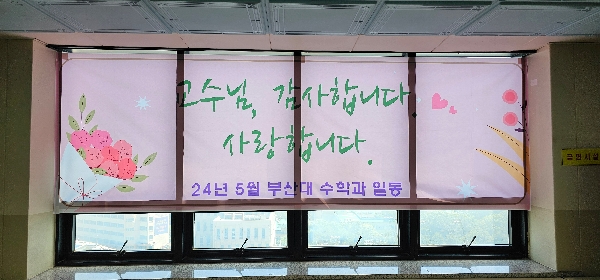 교수님, 감사합니다.
사랑합니다.
24년 5월 부산대 수학과 일동